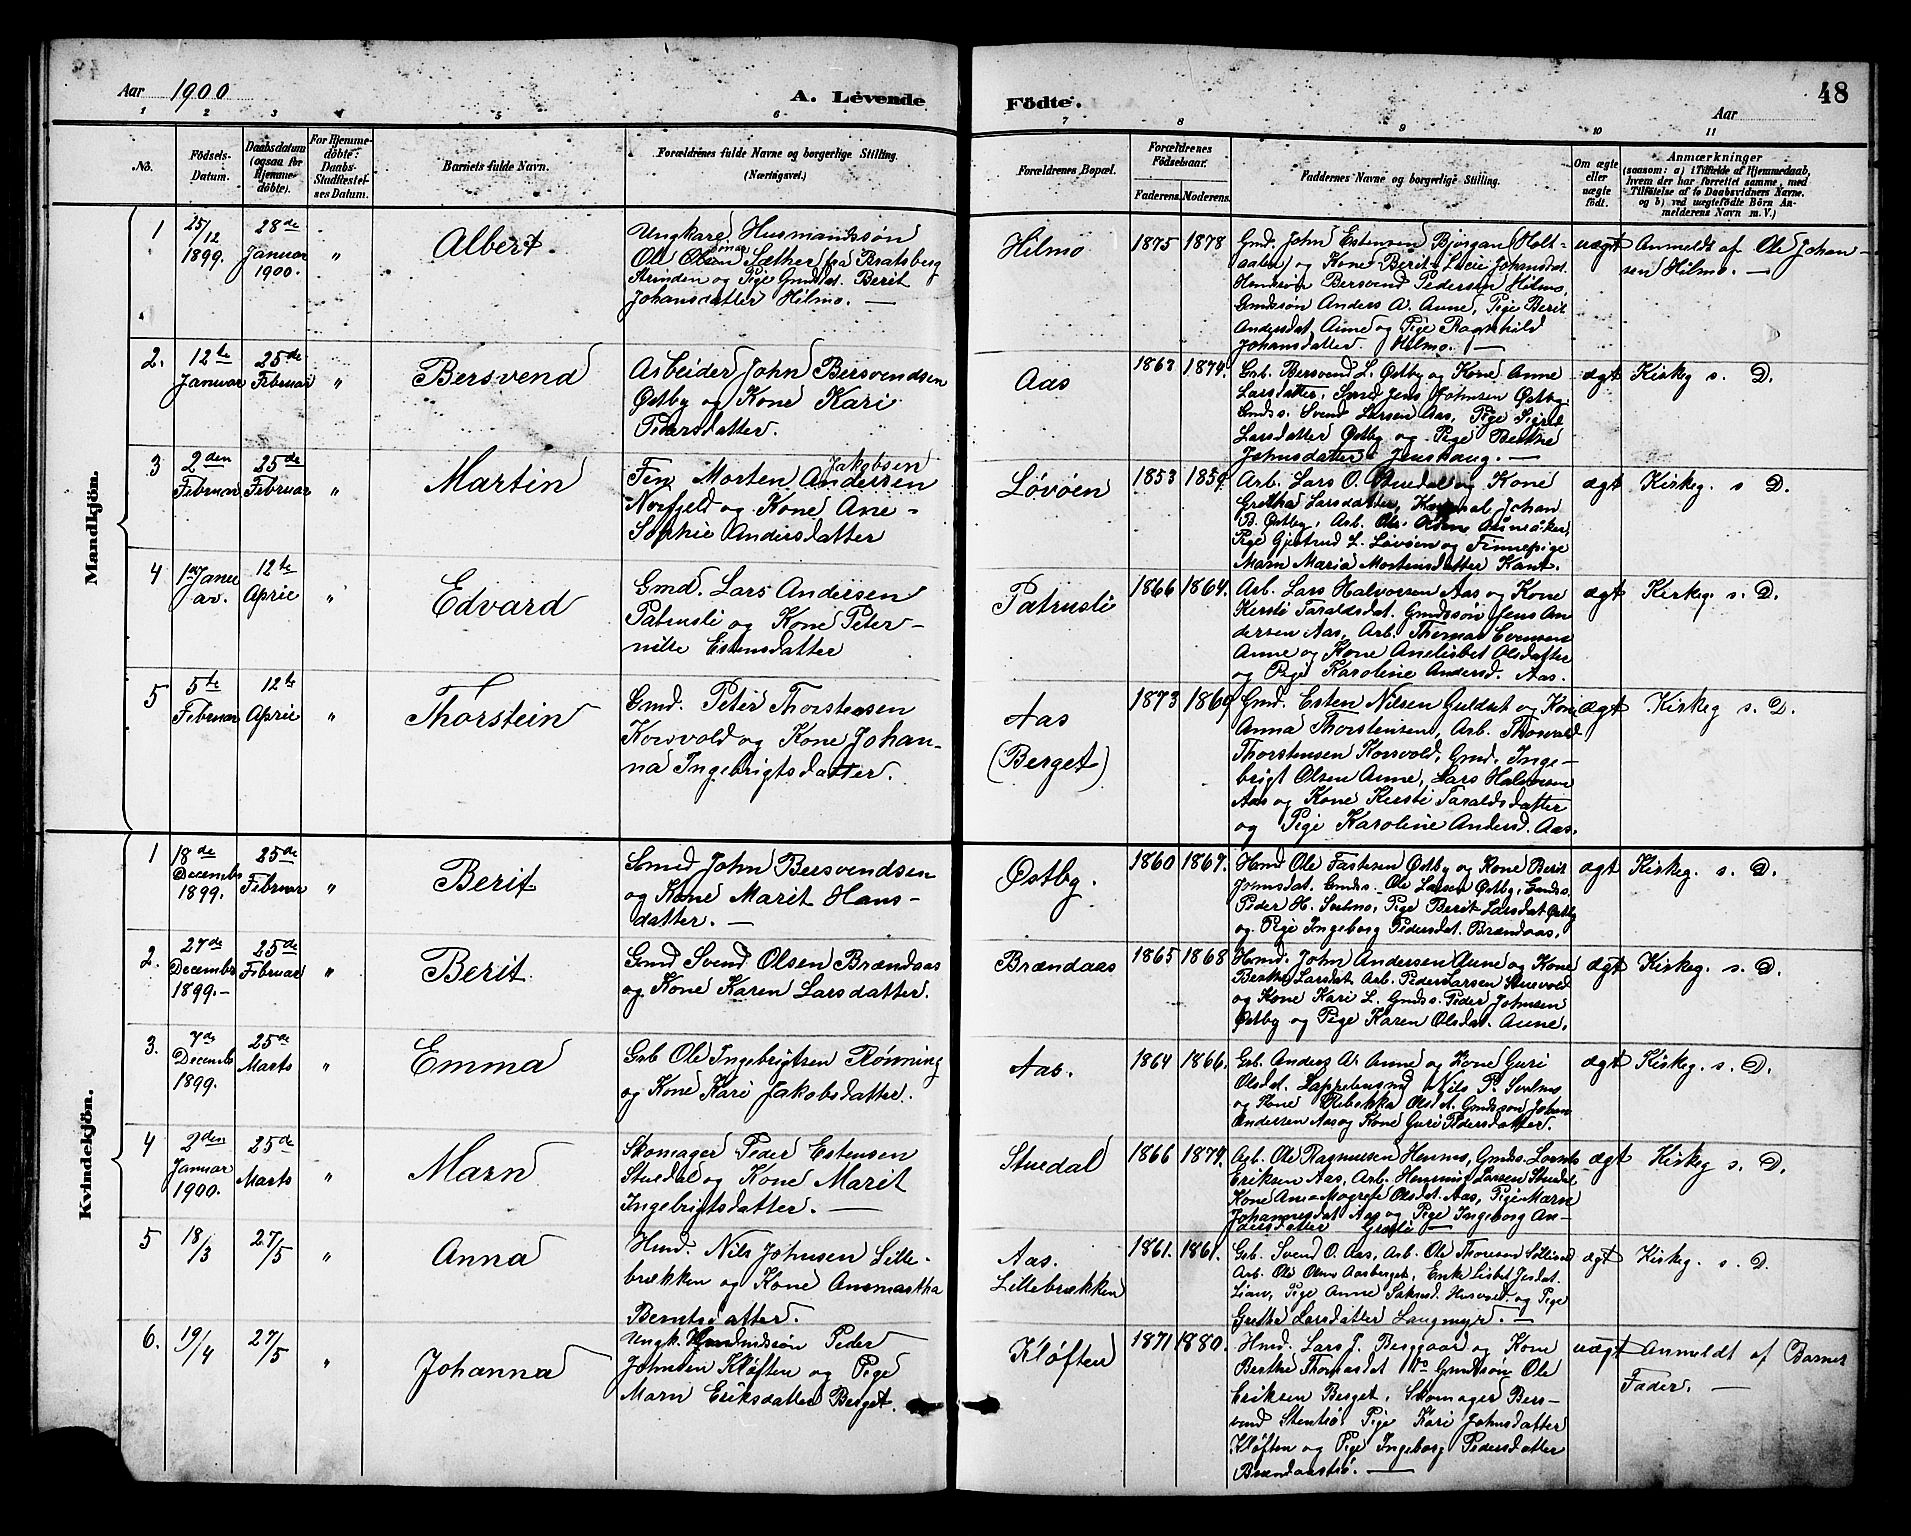 Aar 1900
A. Levende Födte.
Aar
48
1 2 3 4 5 6 7 8 9 10 11
No.
Födsels-Datum.
Daabsdatum (ogsaa for Hjemmedöbte).
For Hjemmedöbte: Daabs-Stadfæstelses Datum.
Barnets fulde Navn.
Forældrenes fulde Navne og borgerlige Stilling. (Næringsvei.)
Forældrenes Bopæl.
Forældrenes Födselsaar.
Faderens. Moderens.
Faddernes Navne og borgerlige Stilling.
Om ægte eller uægte födt.
Anmærkninger (saasom: a) i Tilfælde af Hjemmedaab, hvem der har forrettet samme, med Tilföielse af to Daabsvidners Navne, og b) ved uægtefödte Börn Anmelderens Navn m. V.)
Mandkjön.
1
25/12 1899.
28de Januar 1900.
"
Albert.
Ungkarl Husmandssøn
Ole Olsen Sæther fra Bratsberg
Strinden og Pige Gmdsdat. Berit
Johansdatter Hilmo. —
Hilmo
1875 1878
Gmd. John Estensen Bjørgan Holt-
aalen og Kone Berit Lucie Johansdat.
Bersvend Pedersen Hilmo,
Gmdssøn Anders A. Aune, Pige Berit
Andersdat. Aune og Pige Ragnhild
Johansdatter Hilmo. —
uægt
Anmeldt af Ole Johan-
sen Hilmo. —
2.
12te Januar
25de Februar
"
Bersvend
Arbeider John Bersvendsen
Østby og Kone Kari
Pedersdatter.
Aas
1863 1874.
Bersvend L. Østby og Kone Anne
Larsdatter, Smed Jens Johnsen Østby,
Gmdss. Svend Larsen Aas, Pige Sigrid
Larsdatter Østby og Pige Berthe
Johnsdatter Jenshaug. —
ægt
Kirkeg. s. D.
3
2den Februar
25de Februar
"
Martin
Jakobsen
Fin Morten Andersen
Norfjeld og Kone Ane-
Sophie Andersdatter
Løvøen
1853 1859.
Arb. Lars O. Stuedal og Kone
Grethe Larsdatter, Johan
B. Østby, Arb. Ole
Pige Gjertrud L. Løvøen og Finnepige
Marn Maria Mortensdatter Kant.
ægt
Kirkeg. s D.
4
1ste Janu
ar.
12te April
"
Edvard
Gmd. Lars Andersen
Patrusli og Kone Peter-
nille Estensdatter
Patrusli
1866 1864.
Arb. Lars Halvorsen Aas og Kone
Kersti Taraldsdat. Gmdssøn Jens An
dersen Aas, Arb. Thomas Evensen
Aune og Kone Anelisbet Olsdatter
og Pige Karoline Andersd. Aas.
ægt
Kirkeg. s. D.
5
5te Februar
12te April
"
Thorstein
Gmd. Peter Thorstensen
Korsvold og Kone Johan-
na Ingebrigtsdatter.
Aas
(Berget)
1873 1869
Gmd. Esten Nilsen Guldset og Kone
Anna Thorstensen, Arb. Thorvald
Thorstensen Korsvold, Gmd. Inge-
brigt Olsen Aune, Lars Halvorsen
Aas og Kone Kersti Taraldsdatter
og Pige Karoline Andersd. Aas.
ægt
Kirkeg s. D.
Kvindekjön.
1
18de Decembr 1899.
25de Februar
"
Berit
Smed John Bersvendsen
og Kone Marit Hans-
datter. —
Østby.
1860 1867.
Hmd Ole Fastesen Østby og Kone Berit
Jonsdat. Gmdss. Ole Larsen Østby, Gmdss.
Peder H. Svelmo, Pige Berit Larsdat Østby
og Pige Ingeborg Pedersdat. Brændaas.
ægt
Kirkeg. s. D.
2.
27de Decembr 1899. —
25de Februar
"
Berit
Gmd Svend Olsen Brændaas
og Kone Karen Larsdatter.
Brændaas
1865 1868
Hmd. John Andersen Aune og Kone
Berthe Larsdat. Arb. Peder Larsen Stuevold
og Kone Kari L. Gmdss. Peder Johnsen
Østby og Pige Karen Olsdat. Aune.
ægt
Kirkeg. s. D.
3.
7de Decembr 1899.
25de Marts
"
Emma
Ole Ingebrigtsen Rønning
og Kone Kari Jakobsdatter.
Aas.
1864 1866.
Anders A. Aune og Kone Guri
Olsdat. Lappelensmd Nils P. Svelmo
og Kone Rebekka Olsdt. Gmdssøn Johan
Andersen Aas og Kone Guri Pedersdatter.
ægt
Kirkeg. s. D.
4
2den Januar 1900.
25de Marts
"
Marn
Skomager Peder Estensen
Stuedal og Kone Marit
Ingebrigtsdatter. —
Stuedal
1866 1874.
Arb. Ole Rasmussen Hennes, Gmdss. Lornts
Eriksen Aas, Arb. Henning Larsen Stuedal,
Kone Ane-Magrete Olsdat. Aas, Pige Marn
Johannesdat Aas og Pige Ingeborg An-
dersdatter Græsli —
ægt
Kirkeg s. D.
5
18/3
27/5
"
Anna
Hmd. Nils Johnsen Lille-
brækken og Kone Ansmartha
Berntsdatter.
Aas.
Lillebrækken
1861. 1861.
Svend O. Aas, Arb. Ole Thoresen
Arb. Ole Olsen Aasberget, Enke Lisbet
Lian, Pige Anne og Pige
Grethe Larsdatter Langmyr. —
ægt
Kirkeg. s. D.
6.
19/4
27/5
"
Johanna
Ungk. Peder
Johnsen Kløften og Pige
Marn Eriksdatter Berget.
Kløften
1871 1880.
Hmd. Lars J. Berggaar og Kone
Berthe Thomasdat Gmdssøn Ole
Eriksen Berget, Skomager Bers-
vend Stentrø, Pige Kari Johnsdatter
Kløften og Pige Ingeborg Pedersdatter
Brændaastrø. —
uægt
Anmeldt af Barnets
Fader. —